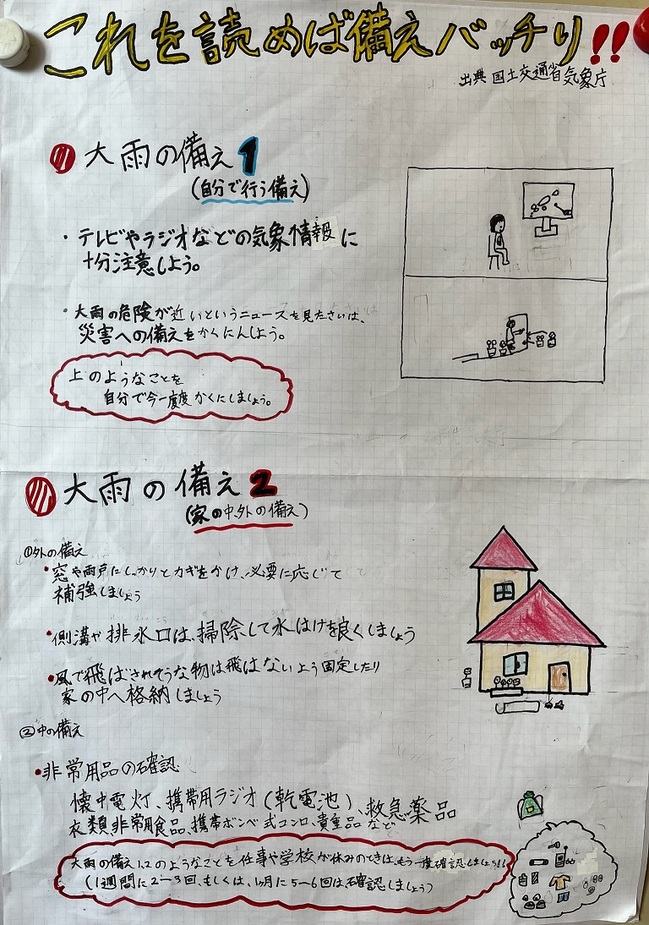 これを読めば備えバッチリ!!
出典 国土交通省気象庁
大雨の備え1
(自分で行う備え)
・テレビやラジオなどの気象情報に
十分注意しよう。
・大雨の危険が近いというニュースを見たさいは、
災害への備えをかくにんしよう。
上のようなことを
自分で今一度度かくにしましょう。
大雨の備え2
(家の中、外の備え)
①外の備え
・窓や雨戸にしっかりとカギをかけ、必要に応じて
補強しましょう
・側溝や排水口は、掃除して水はけを良くしましょう
・風で飛ばされそうな物は飛ばないよう固定したり
家の中へ格納しましょう
②中の備え
・非常用品の確認
懐中電灯、携帯用ラジオ(乾電池)、救急薬品
衣類、非常用食品、携帯ボンベ式コンロ、貴重品など
大雨の備え1、2のようなことを仕事や学校が休みのときは、もう一度確認しましょう!!
(1週間に2〜3回、もしくは、1ヶ月に5〜6回は確認しましょう)